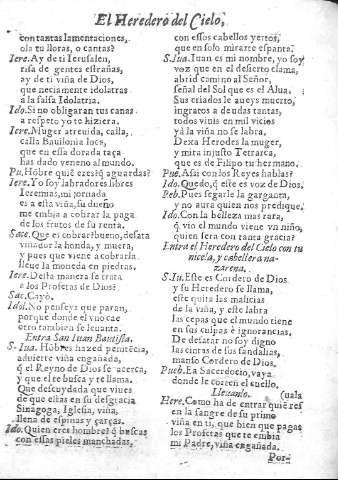 El Heredero del Cielo,
con tantas lamentaciones,
ola tu lloras, o cantas?
Iere. Ay de ti Ierusalen,
risa de gentes estrañas,
ay de ti viña de Dios,
que neciamente idolatras
a la falsa Idolatria.
Ido. Si no obligaran tus canas
a respeto yo te hiziera.
Iere. Muger atreuida, calla,
calla Bauilonia loca,
que en essa dorada taça
has dado veneno al mundo.
Pu. Hõbre quiẽ eres? q̃ aguardas?
Iere. Yo soy labradores libres
Ieremias, mi jornada
es a esta viña, su dueño
me embia a cobrar la paga
de los frutos de su renta.
Sace. Que es cobrar? bueno, desata
vinador la honda, y muera,
y pues que viene a cobrarla
lleue la moneda en piedras.
Iere. Desta manera se trata
a los Profetas de Dios?
Sac. Cayò.
Idol. No penseys que paran,
porque donde el vno cae
otro tambien se leuanta.
Entra San Iuan Bautista.
S. Iua. Hõbres hazed penitẽcia,
aduierte viña engañada,
q̃ el Reyno de Dios se acerca,
y que el te busca y te llama.
Que descuydada que viues
de que estas en su desgracia
Sinagoga, Iglesia, viña,
llena de espinas y çarças.
Ido. Quien eres hombre? q̃ buscas
con essas pieles manchadas,
con essos cabellos yertos,
que en solo mirarte espanta.
S. Iua. Iuan es mi nombre, yo soy
voz que en el desierto clama,
abrid camino al Señor,
señal del Sol que es el Alua.
Sus criados le aueys muerto,
ingratos a deudas tantas,
todos viuis en mil vicios
ya la viña no se labra,
Dexa Herodes la muger,
y mira injusto Tetrarca,
que es de Filipo tu hermano.
Pue. Assi con los Reyes hablas?
Ido. Quedo, q̃ este es voz de Dios.
Peb. Pues segarle la garganta,
y no aura quien nos predique.
Ido. Con la belleza mas rara,
q̃ vio el mundo viene vn niño,
quien sera con tanta gracia?
Entra el Heredero del Cielo con tu
nicela, y cabellera na-
zarena.
S. Iu. Este es Cordero de Dios
y su Heredero se llama,
este quita las malicias
de la viña, y este labra
las cepas que el mundo tiene
en sus culpas è ignorancias.
De desatar no soy digno
las cintas de sus sandalias,
manso Cordero de Dios.
Pueb. Ea Sacerdocio, vaya
donde le corten el cuello.
Lleuanlo. (uala
Here. Como ha de entrar quiẽ res
en la sangre de su primo
viña en ti, que bien que pagas
los Profetas que te embia
mi Padre, viña engañada.
Por-